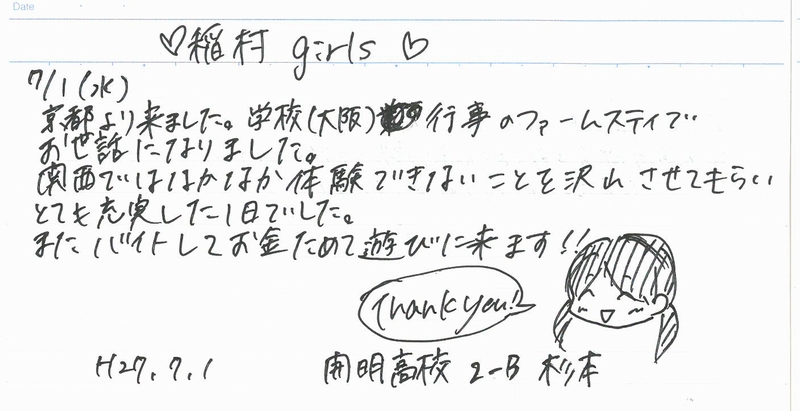 Date
♡稲村 girls ♡
7/1(水)
京都より来ました。学校(大阪)行事のファームスティで
お世話になりました。
関西ではなかなか体験できないことを沢山させてもらい
とても充実した1日でした。
またバイトしてお金ためて遊びに来ます!!
Thank you!!
H27.7.1 開明高校 2-B 杉本